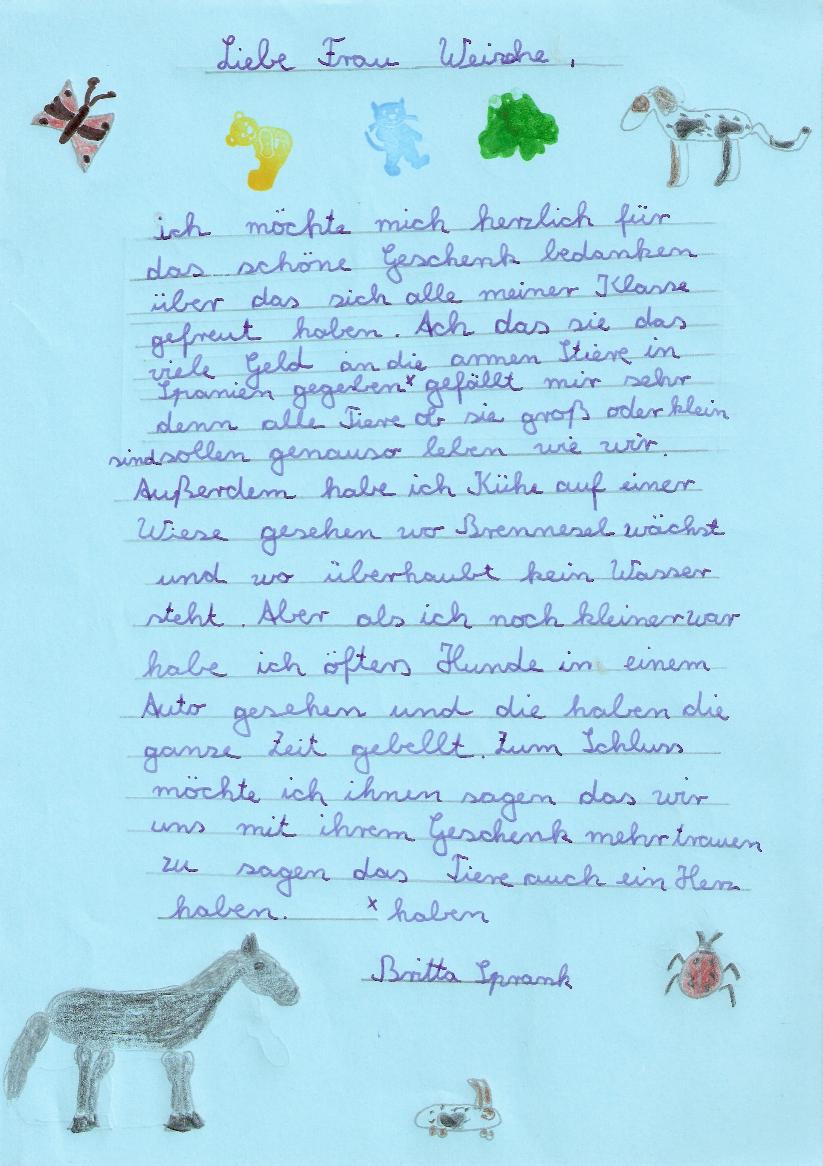 Liebe Frau Weirche,
ich möchte mich herzlich für
das schöne Geschenk bedanken
über das sich alle meiner Klasse
gefreut haben. Ach das sie das
viele Geld an die armen Stiere in
Spanien gegeben x gefällt mir sehr
denn alle Tiere ob sie groß oder klein
sind sollen genauso leben wie wir.
Außerdem habe ich Kühe auf einer
Wiese gesehen wo Brennesel wächst
und wo überhaubt kein Wasser
steht. Aber als ich noch kleiner war
habe ich öfters Hunde in einem
Auto gesehen und die haben die
ganze Zeit gebellt. Zum Schluss
möchte ich ihnen sagen das wir
uns mit ihrem Geschenk mehr trauen
zu sagen das Tiere auch ein Herz
haben. x haben
Britta Sprank